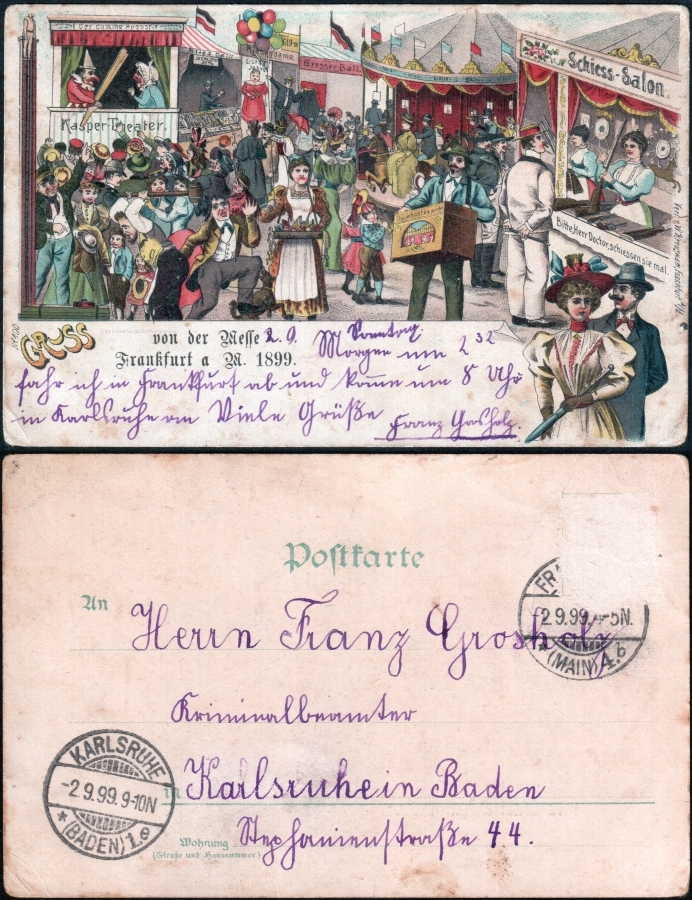 Kasper-Theater.
Grosser-Ball.
Schiess-Salon.
Bitte, Herr Doctor, schiessen sie mal.
GRUSS
von der Messe 2.9.
Frankfurt a M. 1899.
Sonntag
Morgen um 2 32
fahr ich in Frankfurt ab und komme um 8 Uhr
in Karlsruhe an Viele Grüße
Franz
Postkarte
An
Herrn Franz Grosholz
A.
Kriminalbeamter
in Karlsruhe in Baden
Wohnung
(Straße und Hausnummer)
Stephanienstraße 44.
FRA
2.9.99. 4-5N.
* (MAIN) 4. b
KARLSRUHE
-2.9.99. 9-10N
* (BADEN) 1.e